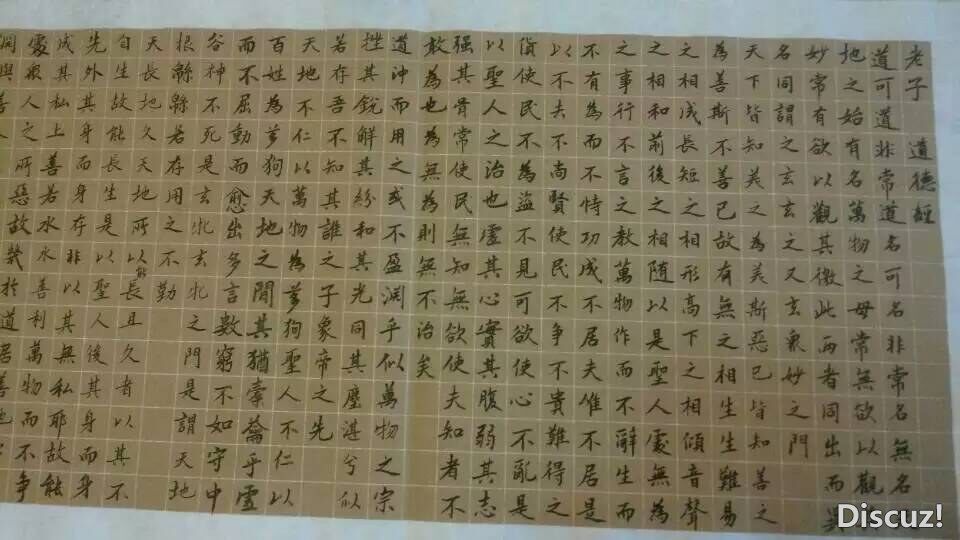 老子 道德經
道可道非常道名可名非常名無名
地之始有名萬物之母常無欲以觀
妙常有欲以觀其徼此兩者同出而
名同謂之玄玄之又玄衆妙之門
天下皆知美之為美斯惡已皆知善之
為善斯不善已故有無之相生難易
之相成長短之相形高下之相傾音聲
之相和前後之相随以是聖人處無為
之事行不言之教萬物作而不辭生而
不有為而不恃功成不居夫惟不居是
以不去不尚賢使民不爭不貴難得之
貨使民不為盜不見可欲使心不亂是
以聖人之治也虛其心實其腹弱其志
强其骨常使民無知無欲使夫知者不
敢為也為無為則無不治矣
道沖而用之或不盈淵乎似萬物之宗
挫其銳解其紛和其光同其塵湛兮似
若存吾不知其誰之子象帝之先
天地不仁以萬物為芻狗聖人不仁以
百姓為芻狗天地之間其猶橐籥乎虛
而不屈動而愈出多言數窮不如守中
谷神不死是玄牝玄牝之門是謂天地
根緜緜若存用之不勤
天長地久天地所以能長且久者以其不
自生故能長生是以聖人後其身而身
先外其身而身存非以其無私耶故能
成其私上善若水水善利萬物而不爭
處衆人之所惡故幾於道居善
Discuz!